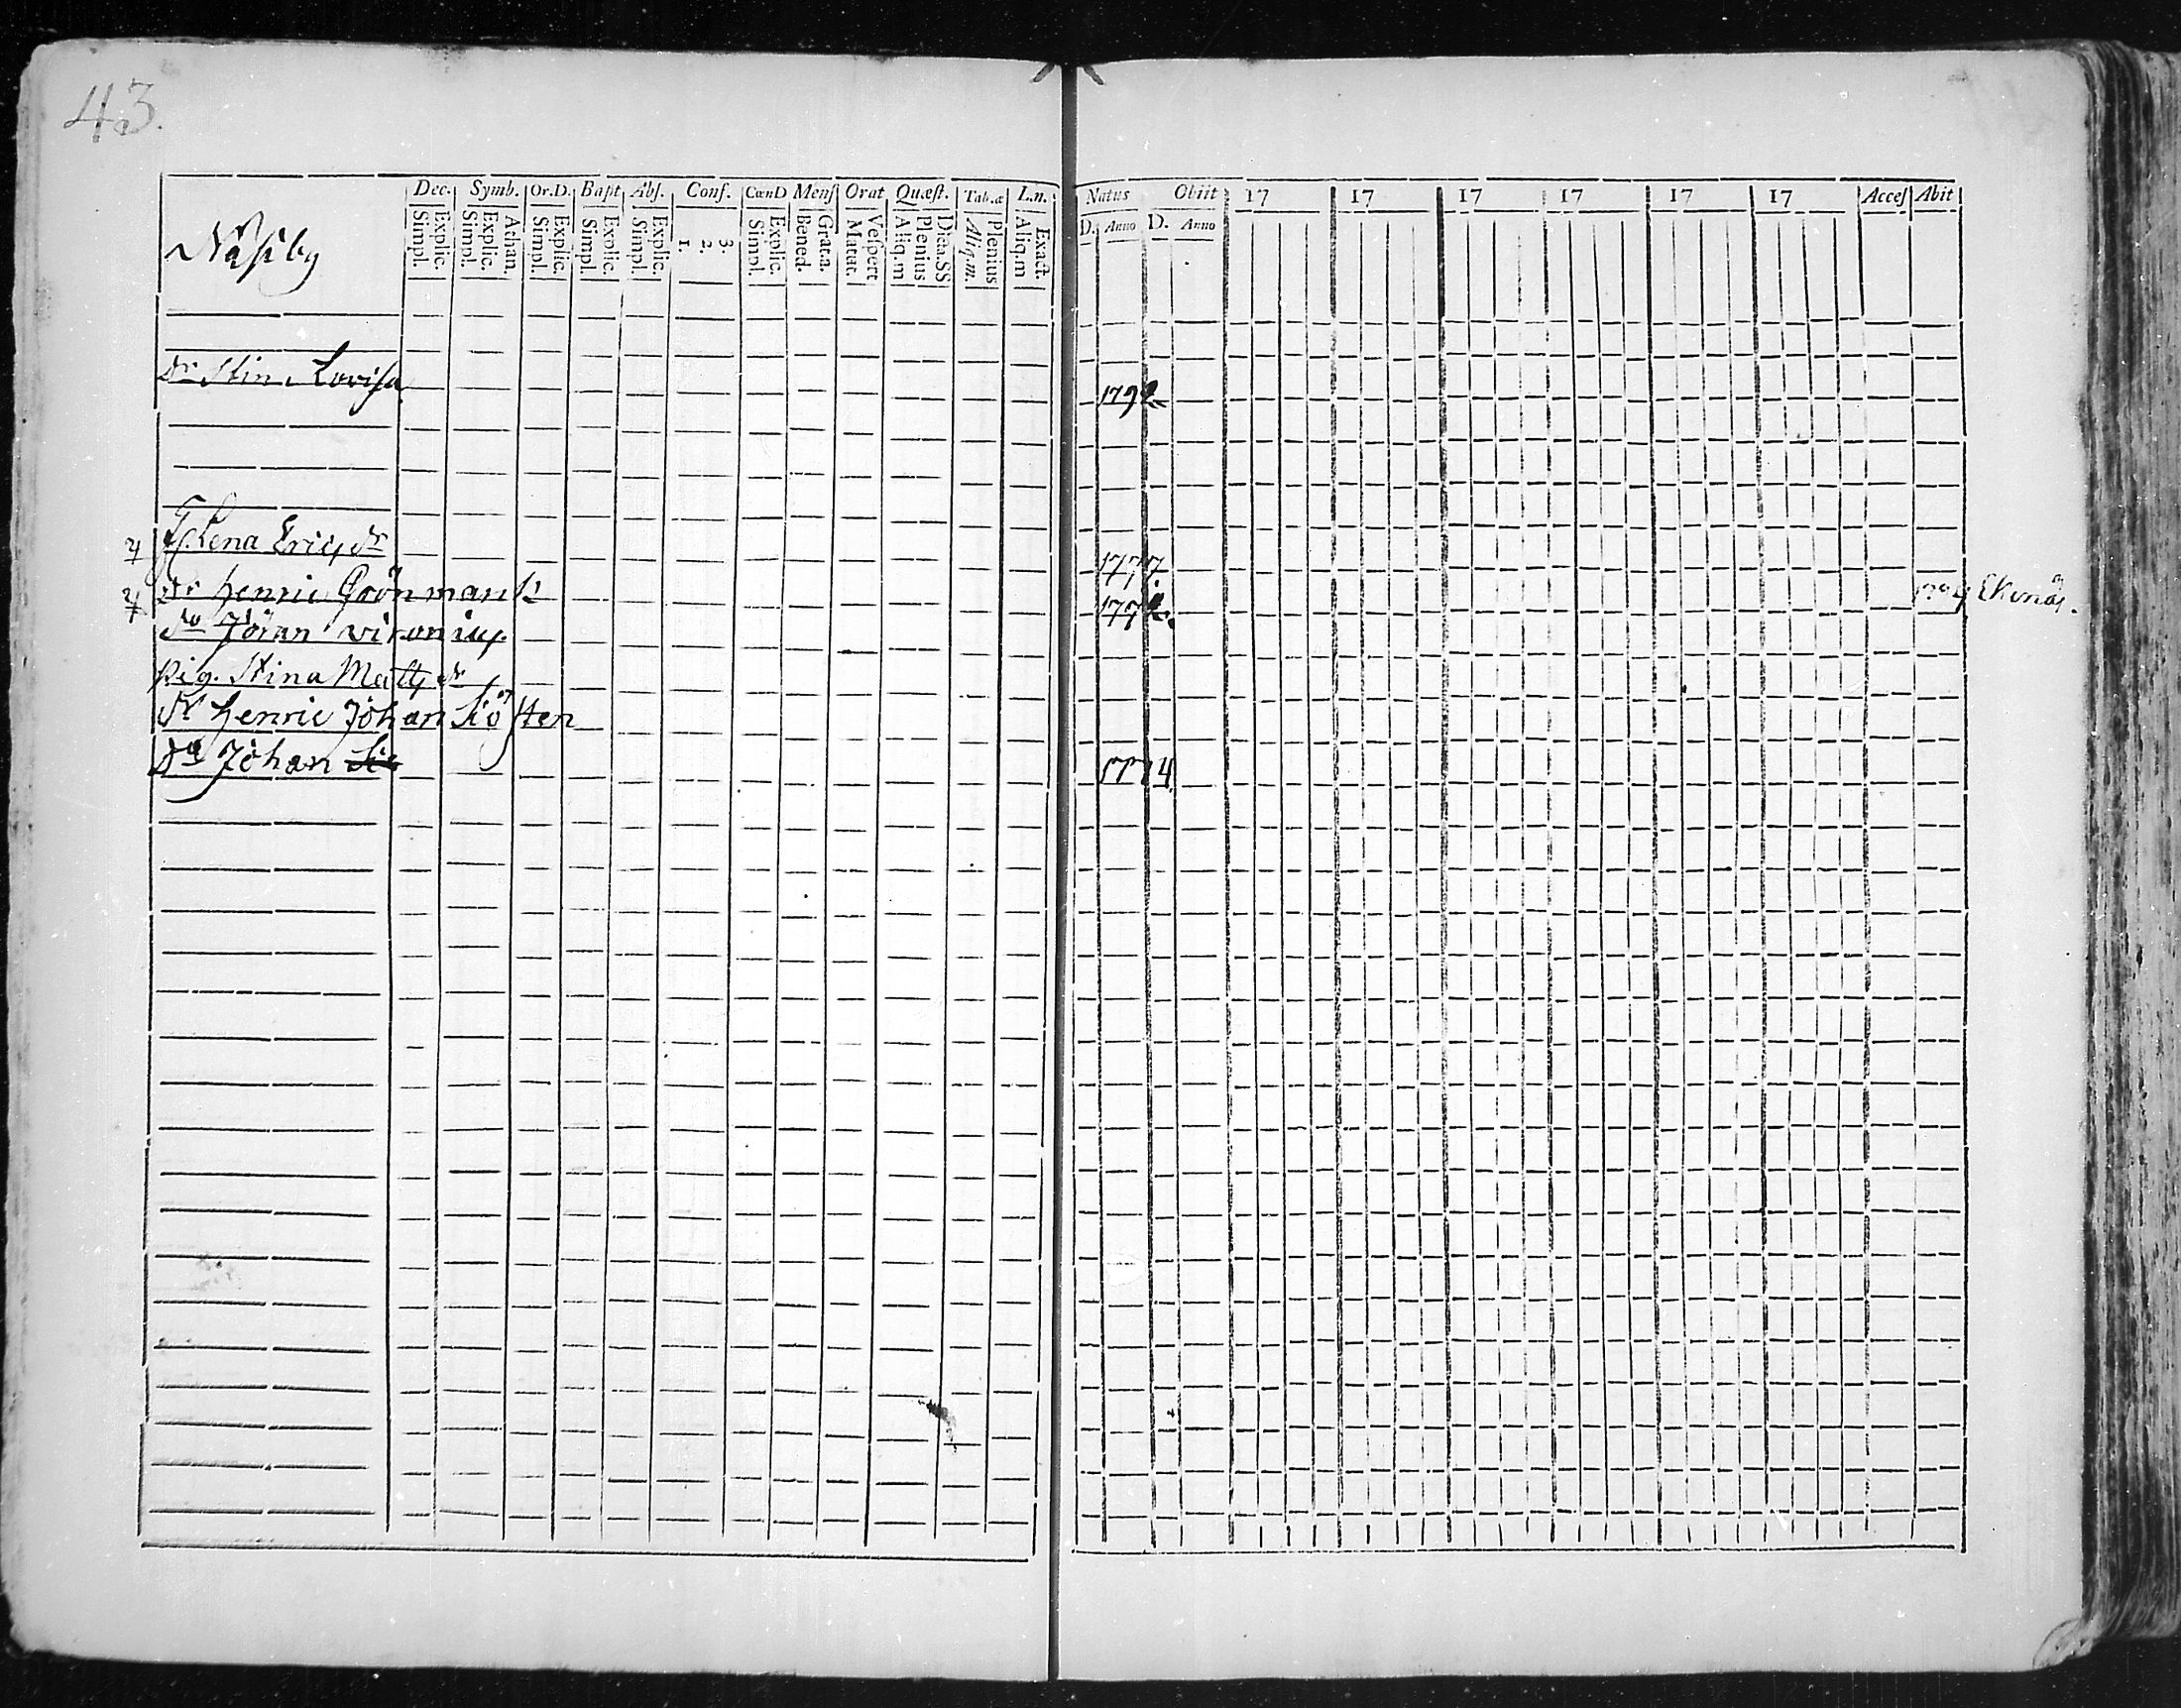 43.
Dec. Symb. Or.D. Bapt Abſ. Conf. CœnD Menſ Orat Quæſt. Tab.æ L.n. Natus Obiit 17 17 17 17 17 17 Acceſ Abit
Explic. Simpl. Athan. Explic. Simpl. Explic. Simpl. Explic. Simpl. Explic. Simpl. 3. 2. 1. Explic. Simpl. Grat.a. Bened. Veſpert Matut. Dicta.SS Plenius Aliq.m Plenius Aliq.m. Exact. Aliq.m D. Anno D. Anno
Näsiby
Dr Stina Lovisa 1792
Lena Eric dr 1777
Dr Henric Grönman
Jöran
Pig. Stina Mats dr
Dr Henric Johan
Johan 1774
Ekenäs.